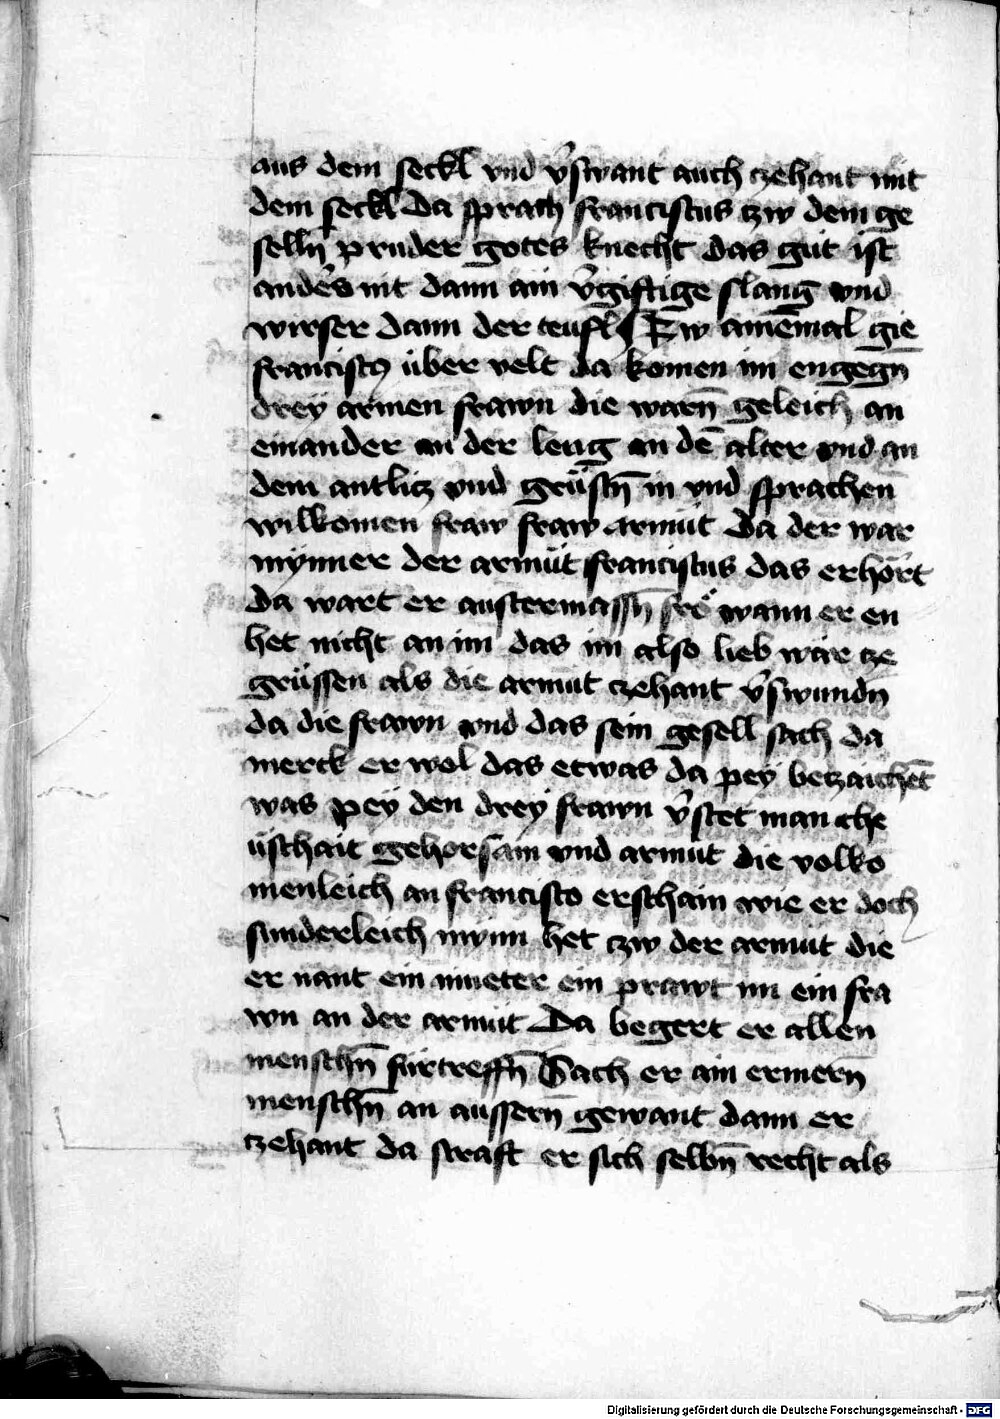 aus dem seckl vnd v̄swant auch czehant mit
dem seckl Da sprach franciscus czw dem ge
selln̄ pruder gotes knecht das gut ist
anders nit dann ain v̄giftige slang vnd
wirser dann der teufl Czw ainēmal gie
franciscꝰ über velt da komen im engegn̄
drey armen frawn die warn̄ geleich an
einander an der leng an dē alter vnd an
dem antlitz vnd grüstn̄ in vnd sprachen
wilkomen fraw fraw armüt Da der war
mynner der armüt franciscus das erhort
Da wart er austermassn̄ fro wann er en
het nicht an im das im also lieb wär cze
grüssen als die armüt czehant v̄swundn̄
da die frawn vnd das sein gesell sach da
merck er wol das etwas da pey betzaichēt
was pey den drey frawn v̄stet man che
üschait gehorsam vnd armut die volko
menleich an francisco erschain wie er doch
sunderleich mynn het czw der armut die
er nant ein mueter ein prawt im ein fra
wn an der armüt Da begert er allen
menschn̄ fürtreffn̄ Sach er ain ermern̄
menschn̄ an aussern̄ gewant dann er
czehant da straft er sich selbn̄ recht als
Digitalisierung gefördert durch die Deutsche Forschungsgemeinschaft - DFG